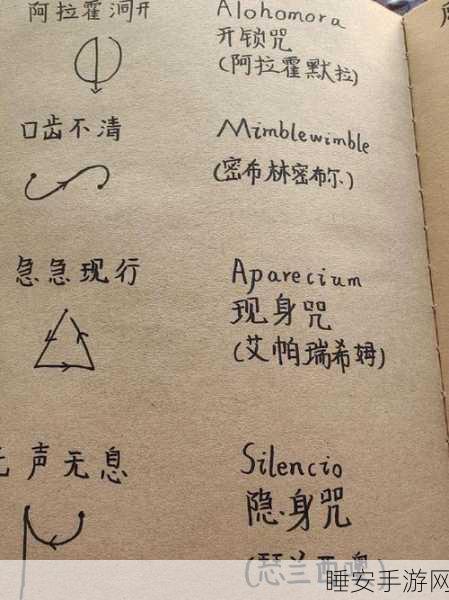 阿拉霍洞开
Alohomora
开锁咒
(阿拉霍默拉)
口齿不清
Mimblewimble
(密布林密布尔)
急急现行
Aparecium
现身咒
(艾帕瑞希姆)
声无息
Silencio
隐身咒
兰西
睡安手游网